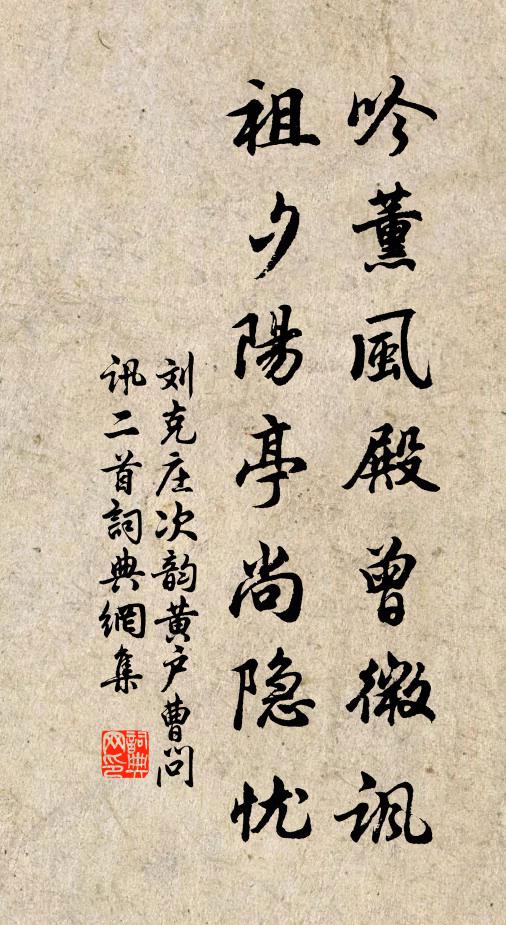 吟薰風殿曾微諷
祖夕陽亭尚隐忧
刘克庄次韵黄户曹问
讯二首詞典網集
詞典网印